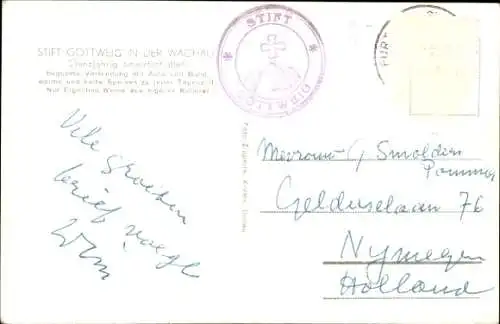 STIFT GÖTTWEIG IN DER WACHAU
Ganzjährig bewirtschaftet
Bequeme Verbindung mit Auto und Bahn
warme und kalte Speisen zu jeder Tageszeit
Nur Eigenbau Weine des eigenen Kellerei
STIFT
GÖTTWEIG
FURT
Vele groeten
brief volgt
Wim
Mevrouw G Smolders
Pommer
Gelderselaan 76
Nymegen
Holland